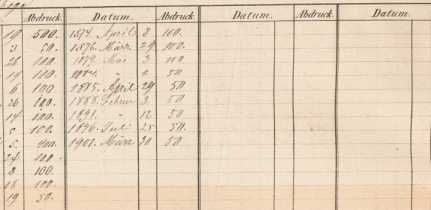 Abdruck. Datum. Abdruck. Datum. Abdruck. Datum.
19 500. 1874. April 8 100.
3 50. 1876. März 29 100.
28 100 1879. Mai 3 100
19 100 " 50
6 100 1885. April 29 50
26 100. 1888. Februar 3 50
14 100. 1891. " 12 50
100. 1896. Juli 28 50.
1901. März 30 50.
24 100.
8 100.
18 100.
19 50.